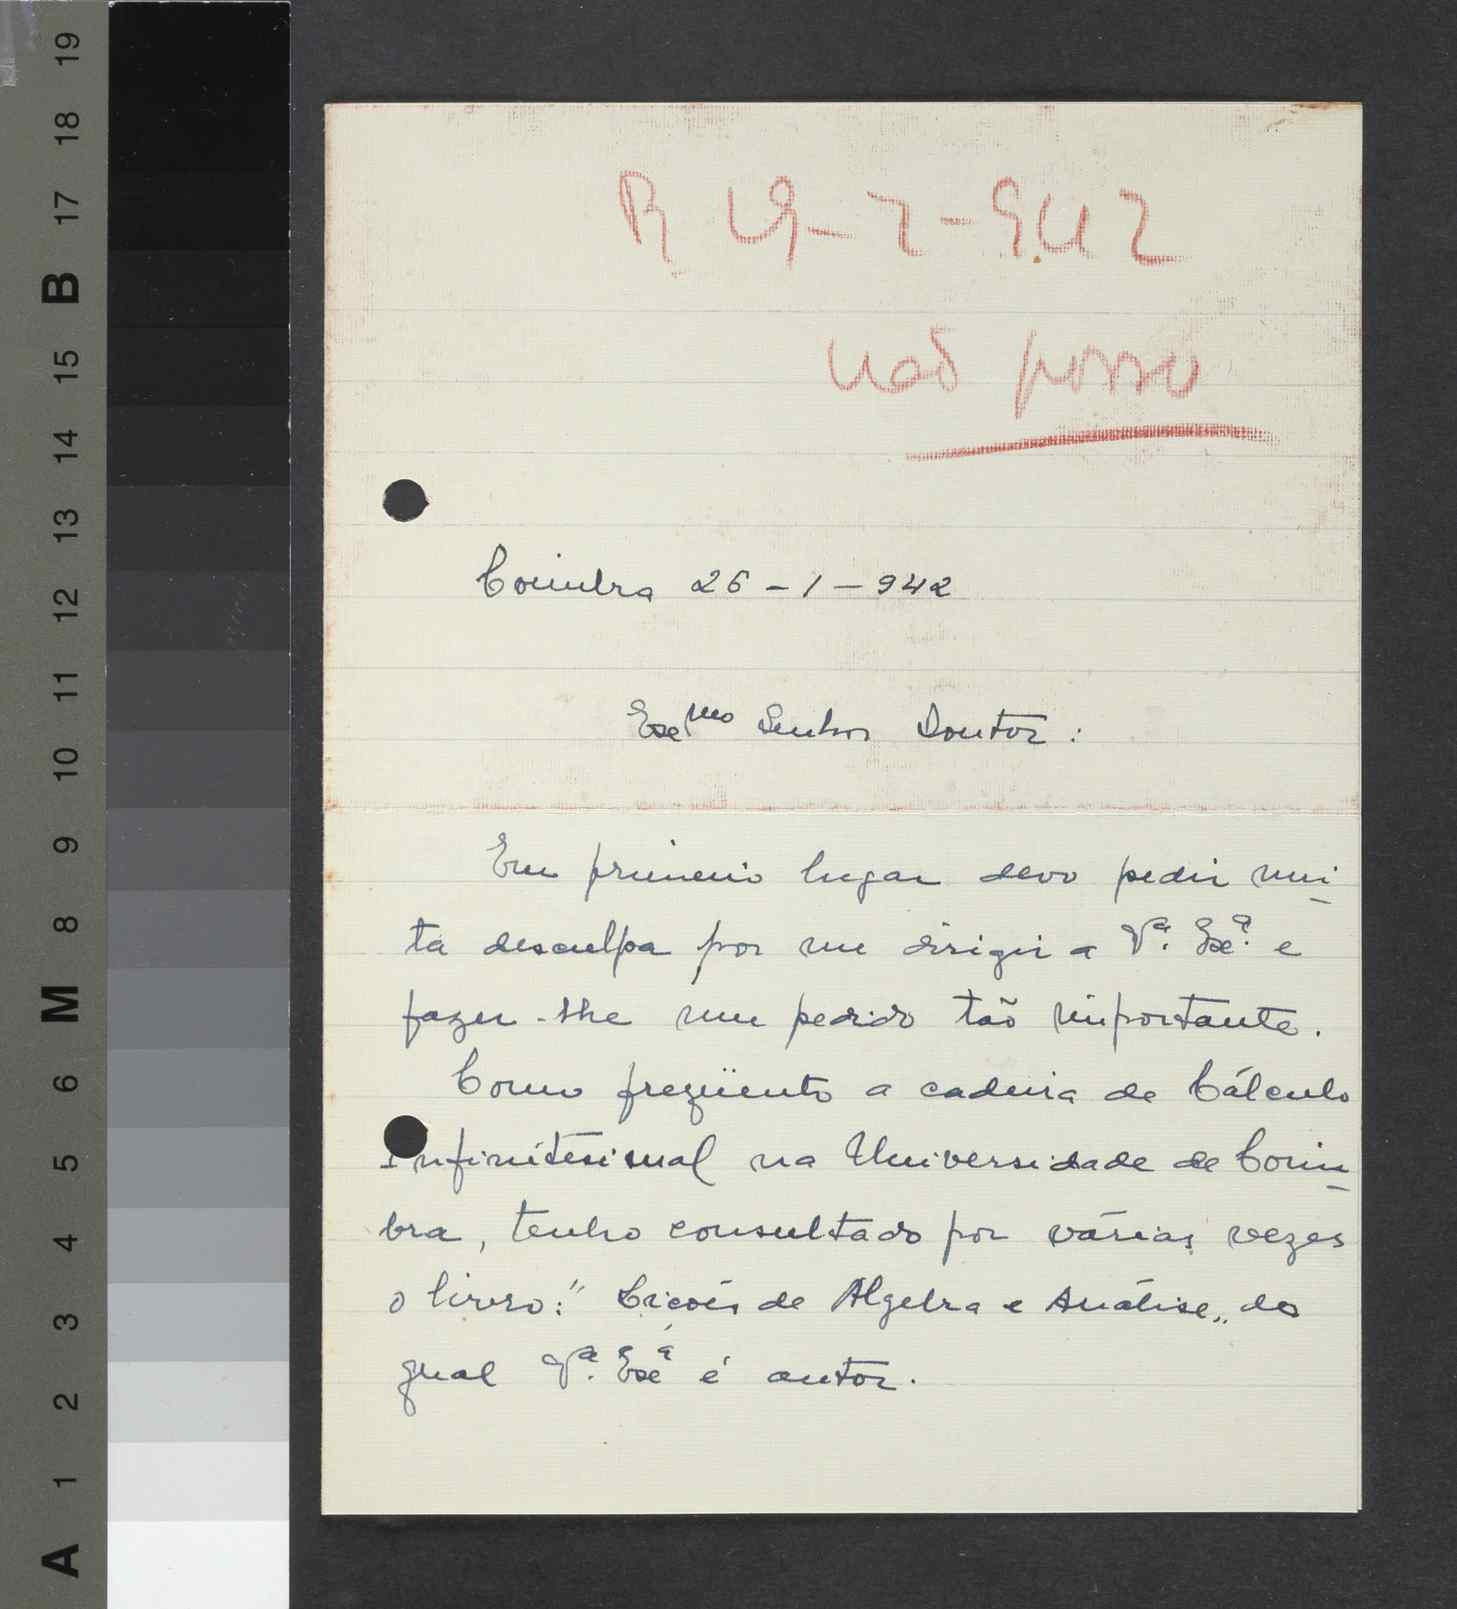 R 19-2-942
não posso
Coimbra 26-1-942
Exᵐᵒ Senhor Doutor:
Em primeiro lugar devo pedir mui-
ta desculpa por me dirigir a Vª. Exª. e
fazer-lhe um pedido tão importante.
Como freqüento a cadeira de Cálculo
Infinitesimal na Universidade de Coim-
bra, tenho consultado por várias vezes
o livro: "Licões de Algebra e Análise„ do
qual Vª. Exª é autor.
A 1 2 3 4 5 6 M 8 9 10 11 12 13 14 15 B 17 18 19